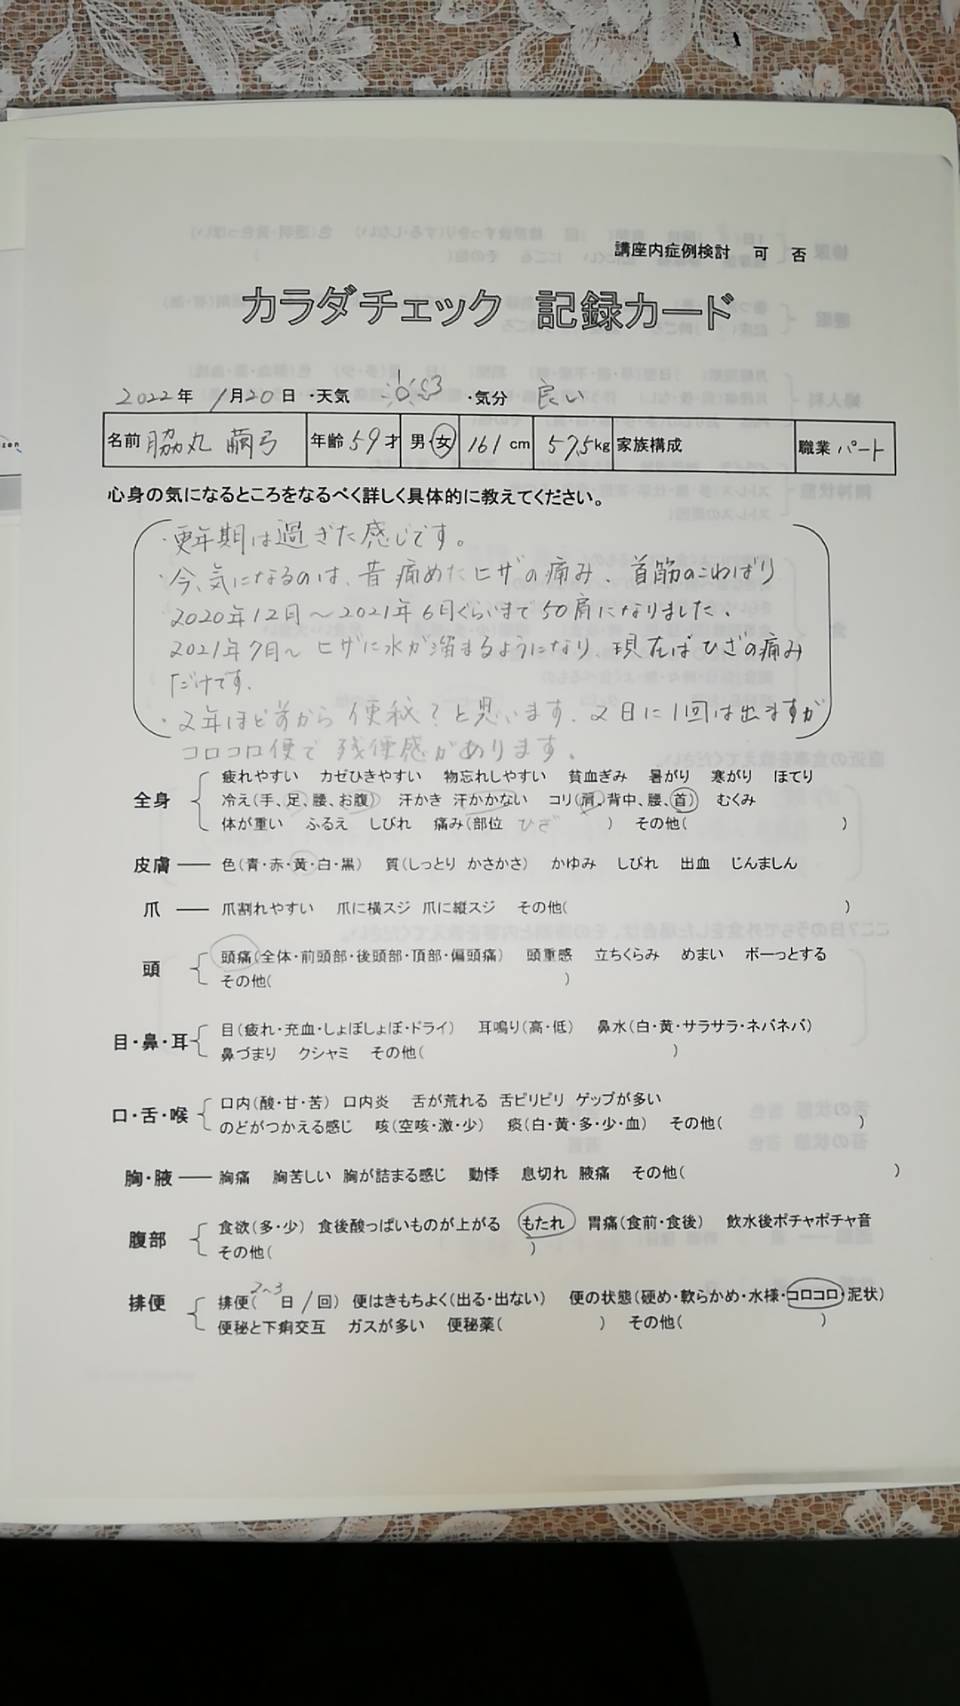 講座内症例検討 可 否
カラダチェック 記録カード
2022年 1月20日 ・天気 ・気分 良い
名前 脇丸 繭弓 年齢 59才 男・女 161cm 57.5kg 家族構成 職業 パート
心身の気になるところをなるべく詳しく具体的に教えてください。
・更年期は過ぎた感じです。
・今、気になるのは、昔痛めたヒザの痛み、首筋のこわばり
2020年12月〜2021年6月ぐらいまで50肩になりました、
2021年7月〜ヒザに水が溜まるようになり、現在はひざの痛み
だけです.
・2年ほど前から便秘?と思います、2日に1回は出ますが
コロコロ便で残便感があります.
全身 疲れやすい カゼひきやすい 物忘れしやすい 貧血ぎみ 暑がり 寒がり ほてり
冷え(手、足、腰、お腹) 汗かき 汗かかない コリ(肩、背中、腰、首) むくみ
体が重い ふるえ しびれ 痛み(部位 ひざ ) その他( )
皮膚 色(青・赤・黄・白・黒) 質(しっとり かさかさ) かゆみ しびれ 出血 じんましん
爪 爪割れやすい 爪に横スジ 爪に縦スジ その他( )
頭 頭痛(全体・前頭部・後頭部・頂部・偏頭痛) 頭重感 立ちくらみ めまい ボーっとする
その他( )
目・鼻・耳 目(疲れ・充血・しょぼしょぼ・ドライ) 耳鳴り(高・低) 鼻水(白・黄・サラサラ・ネバネバ)
鼻づまり クシャミ その他( )
口・舌・喉 口内(酸・甘・苦) 口内炎 舌が荒れる 舌ピリピリ ゲップが多い
のどがつかえる感じ 咳(空咳・激・少) 痰(白・黄・多・少・血) その他( )
胸・腋 胸痛 胸苦しい 胸が詰まる感じ 動悸 息切れ 腋痛 その他( )
腹部 食欲(多・少) 食後酸っぱいものが上がる もたれ 胃痛(食前・食後) 飲水後ポチャポチャ音
その他( )
排便 排便(2〜3日/回) 便はきもちよく(出る・出ない) 便の状態(硬め・軟らかめ・水様・コロコロ・泥状)
便秘と下痢交互 ガスが多い 便秘薬( ) その他( )